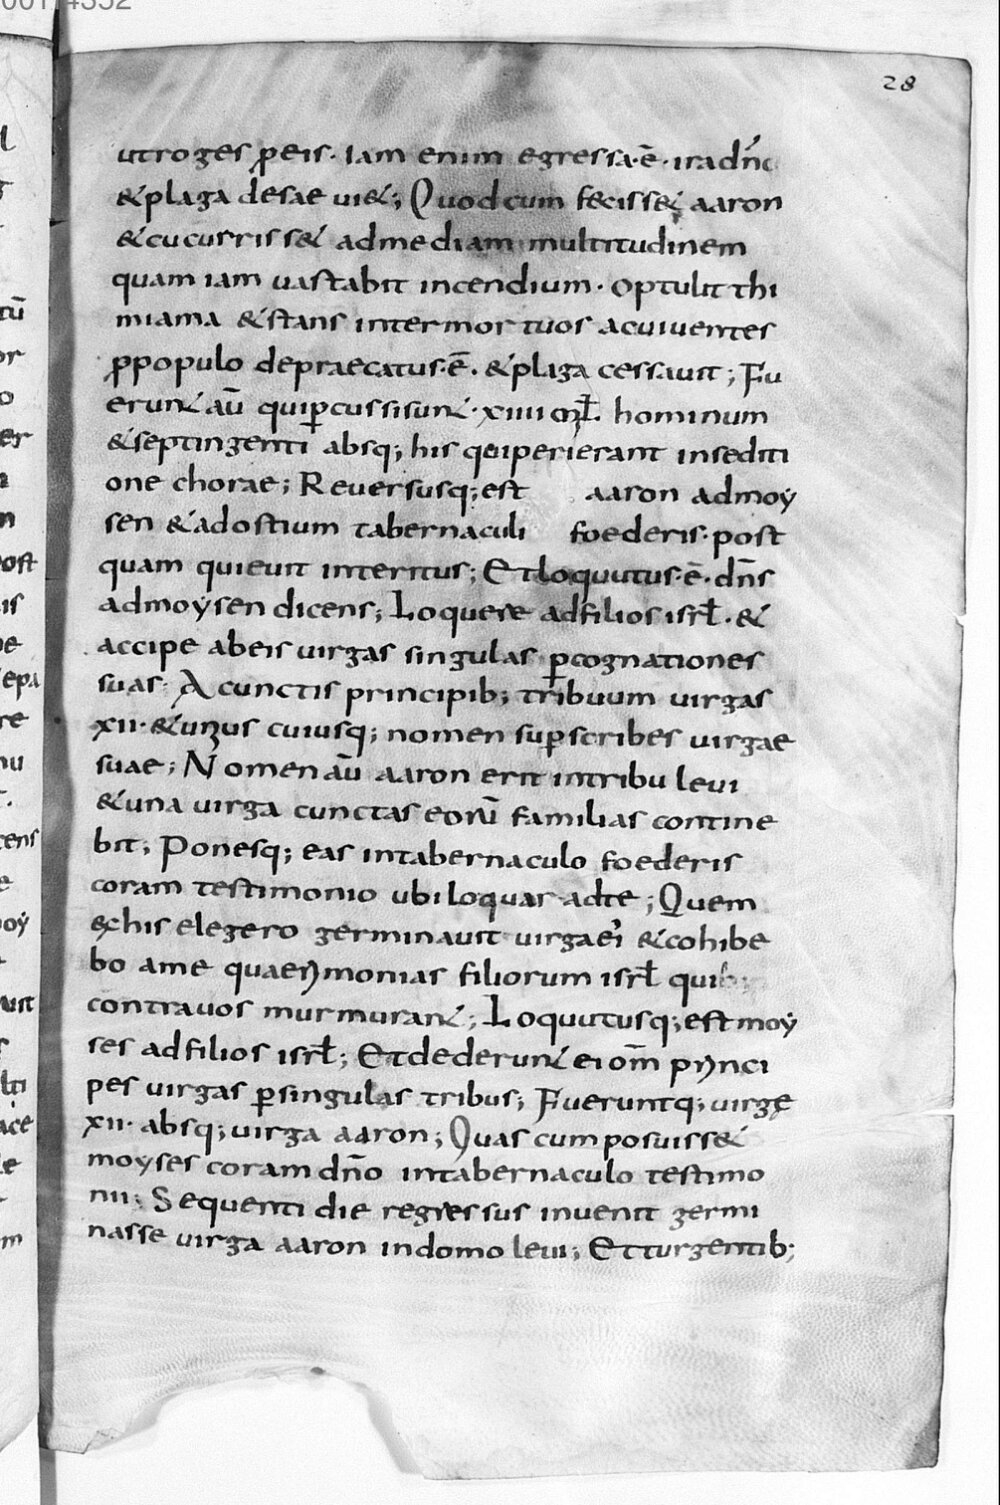 28
utroges ꝓeis · Iam enim egressa · ē · ira dn̄o
& plaga desae uiẽ; Quod cum fecisset aaron
& cucurrisset ad mediam multitudinem
quam iam uastabit incendium · optulit thi
miama & stans inter mortuos ac uiuentes
ꝓ populo depraecatus · ē · & plaga cessauit; Fu
erunt aū qui ꝑcussi sunt · xiiii mł · hominum
& septingenti absq; his qui perierant in sediti
one chorae; Reuersusq; est aaron ad moy
sen & ad ostium tabernaculi foederis · post
quam quieuit interitus; Et loquutus · ē · dn̄s
ad moysen dicens; Loquere ad filios isrł · &
accipe ab eis uirgas singulas ꝑ cognationes
suas · A cunctis principib; tribuum uirgas
xii · & unius cuiusq; nomen suꝑscribes uirgae
suae; Nomen aū aaron erit in tribu leui
& una uirga cunctas eorū familias contine
bit; Ponesq; eas in tabernaculo foederis
coram testimonio ubi loquar ad te; Quem
ex his elegero germinauit uirga ei & cohibe
bo a me quaerymonias filiorum isrł quib;
contra uos murmurant; Loquutusq; est moy
ses ad filios isrł; Et dederunt ei om̄ prynci
pes uirgas ꝑ singulas tribus; Fueruntq; uirgę
xii · absq; uirga aaron; Quas cum posuisset
moyses coram dn̄o in tabernaculo testimo
nii; Sequenti die regressus inuenit germi
nasse uirga aaron in domo leui; Et turgentib;